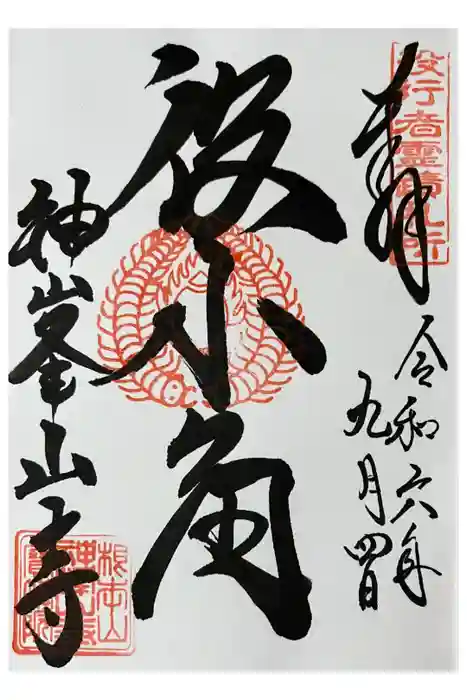 役行者靈蹟札所
奉拝
令和六年
九月四日
役小角
神峯山寺
根本山